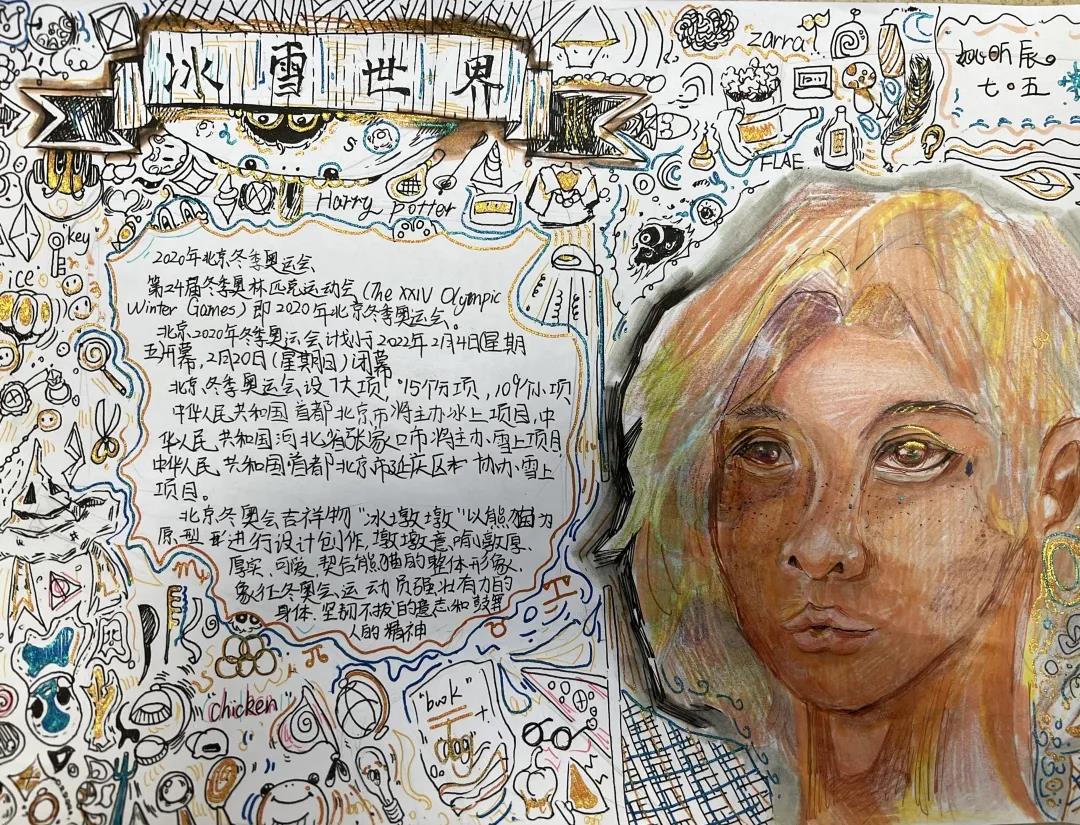 冰雪世界
zarra
昕辰。
七。五
FLAE.
Harry Potter
"key"
ice
2020年北京冬季奥运会
第24届冬季奥林匹克运动会(The XXIV Olympic
Winter Games)即2020年北京冬季奥运会。
北京2020年冬季奥运会计划于2022年2月4日(星期
五)开幕,2月20日(星期日)闭幕
北京冬季奥运会设7大项,15个分项,109个小项
中华人民共和国首都北京市将主办冰上项目,中
华人民共和国河北省张家口市将主办雪上项目
中华人民共和国首都北京市延庆区协办雪上
项目。
北京冬奥会吉祥物"冰墩墩"以熊猫为
原型形进行设计创作,墩墩意喻敦厚、
厚实、可爱,契合熊猫的整体形象,
象征冬奥会运动员强壮有力的
身体、坚韧不拔的意志和鼓舞
人的精神
"chicken"
"book"
dog